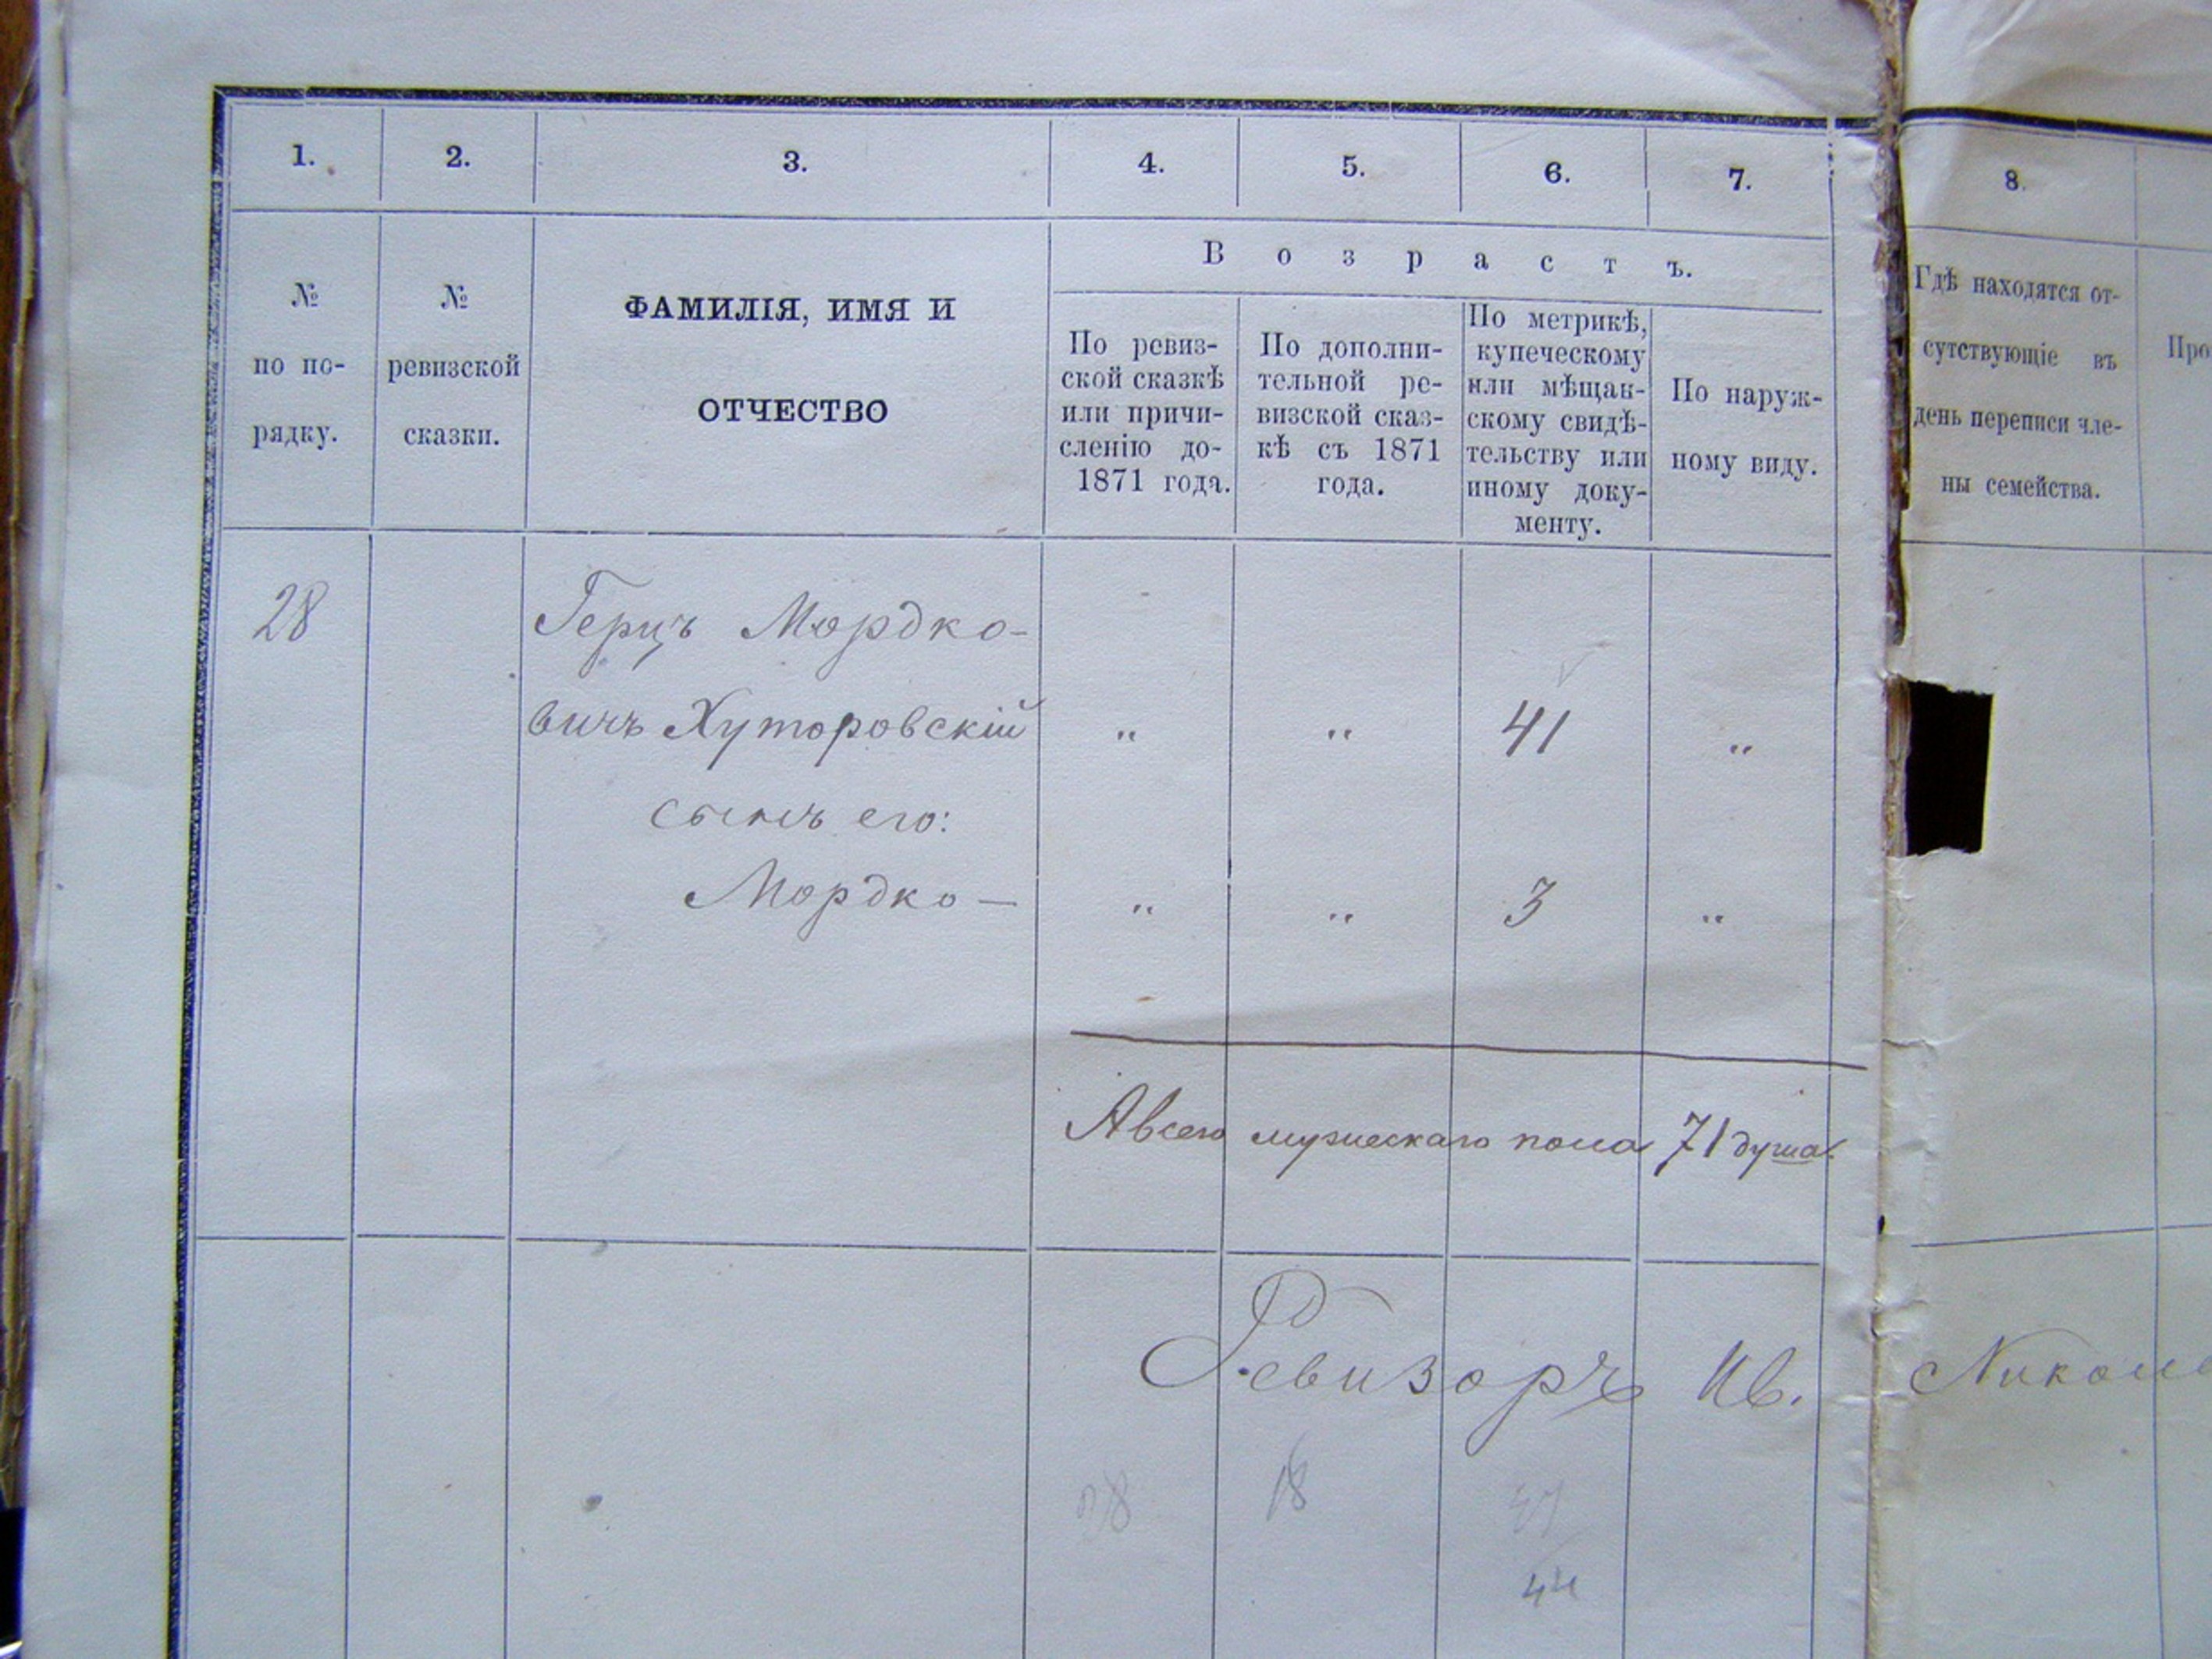 1. 2. 3. 4. 5. 6. 7. 8.
В о з р а с т ъ.
№
по по-
рядку.
№
ревизской
сказки.
ФАМИЛІЯ, ИМЯ И
ОТЧЕСТВО
По ревиз-
ской сказкѣ
или причи-
сленію до-
1871 года.
По дополни-
тельной ре-
визской сказ-
кѣ съ 1871
года.
По метрикѣ,
купеческому
или мѣщан-
скому свидѣ-
тельству или
иному доку-
менту.
По наруж-
ному виду.
Гдѣ находятся от-
сутствующіе въ
день переписи чле-
ны семейства.
Про
28 Герцъ Мордко-
вичъ Хуторовскій „ „ 41 „
сынъ его:
Мордко — „ „ 3 „
А всего мужескаго пола 71 душа.
Ревизоръ Ив. Николе
18
44